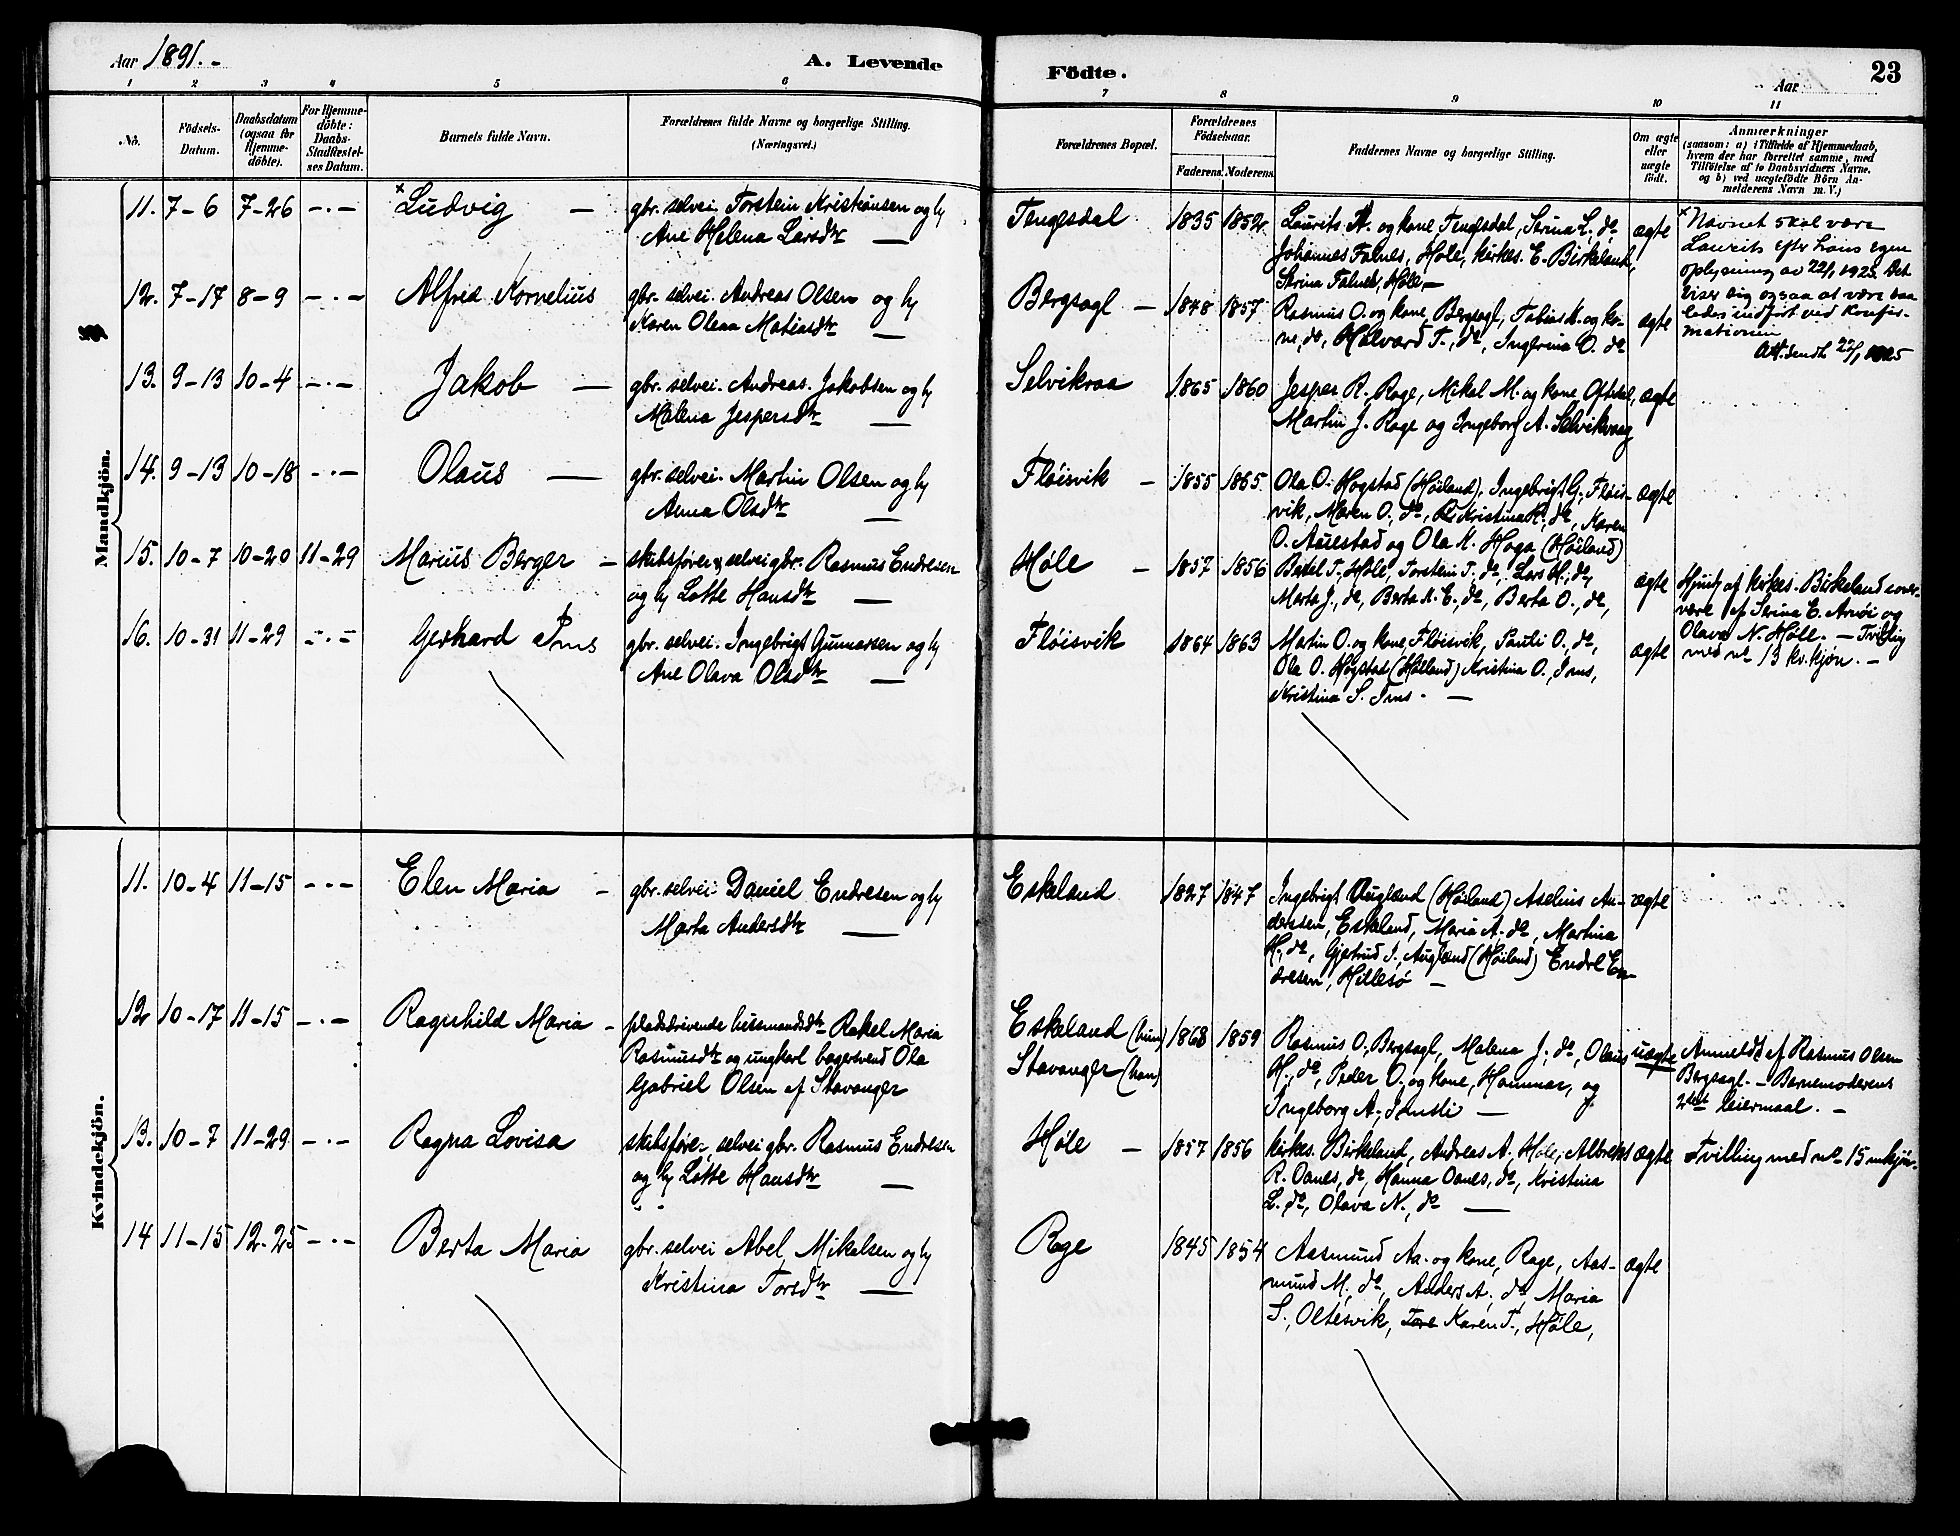 Aar 1891.-
A. Levende
Födte.
Aar
23
1 2 3 4 5 6 7 8 9 10 11
No.
Födsels-
Datum.
Daabsdatum
(ogsaa for
Hjemme-
döbte).
For Hjemme-
döbte:
Daabs-
Stadfæstel-
ses Datum.
Barnets fulde Navn.
Forældrenes fulde Navne og borgerlige Stilling.
(Næringsvei.)
Forældrenes Bopæl.
Forældrenes
Födselsaar.
Faderens. Moderens.
Faddernes Navne og borgerlige Stilling.
Om ægte
eller
uægte
födt.
Anmærkninger
(saasom: a) i Tilfælde af Hjemmedaab,
hvem der har forrettet samme, med
Tilföielse af to Daabsvidners Navne.
og b) ved uægtefödte Börn An-
melderens Navn m. V.)
Mandkjön.
11. 7-6 7-26 -.- × Ludvig — gbr. selvei. Torstein Kristiansen og hu
Ane Helena Larsdtr —
Tengesdal 1835 1852 Laurits A. og kone Tengesdal, Serina L. do
Johannes Falnes, Høle, kirkes. E. Birkeland,
Serina Falnes, Høle —
ægte
× Navnet skal være
Laurits efter hans egen
oplysning av 22/1 1925. Det
viser sig ogsaa at være saa
ledes indført ved konfir-
mationen
22/1 1925
12. 7-17 8-9 -.- Alfred Kornelius gbr. selvei. Andreas Olsen og hu
Karen Olena Matiasdtr —
Bergsagl — 1848 1857 Rasmus O. og kone, Bergsagl, Tobias K. og ko-
ne, do, Halvard T., do, Ingerina O. do
ægte
13. 9-13 10-4 -.- Jakob — gbr. selvei. Andreas Jakobsen og hu
Malena Jespersdtr —
Selvikvaa 1865 1860 Jesper R. Rage, Mikal M. og kone Oftedal,
Martin J. Rage og Ingeborg A. Selvikvaag
ægte
14. 9-13 10-18 -.- Olaus — gbr. selvei. Martin Olsen og hu
Anna Olsdtr —
Fløisvik — 1855 1865 Ola O. Hogstad (Høiland), Ingebrigt G. Fløis-
vik, Maren O., do, Kristina K. do, Karen
O. Auestad og Ola K. Hoga (Høiland)
ægte
15. 10-7 10-20 11-29 Marius Berger — skibsfører & selvei gbr. Rasmus Endresen
og hu Lotte Hansdtr —
Høle — 1857 1856 Bertel T., Høle, Torstein T., do, Lars H., do,
Marta J., do, Berta K. E., do, Berta O., do,
ægte
Hjmd. af kirkes. Birkeland over-
være af Serina E. Arnøi og
Olava N. Høle. — Tvilling
med no 13 kv.kjøn. —
16. 10-31 11-29 -.- Gerhard Ims gbr. selvei. Ingebrigt Gunnarsen og hu
Ane Olava Olsdtr —
Fløisvik 1864 1863 Martin O. og kone Fløisvik, Pauli O., do,
Ola O. Hogstad (Høiland) Kristina O., Ims,
Kristina S. Ims. —
ægte
Kvindekjön.
11. 10-4 11-15 -.- Elen Maria - gbr. selvei. Daniel Endresen og hu
Marta Andersdtr —
Eskeland 1827 1847 Ingebrigt Auglænd (Høiland) Aselius An-
derssen, Eskeland, Maria A. do, Martina
H., do, Gjertrud I., Auglænd (Høiland) Endre En-
dresen, Hillesø —
ægte
12 10-17 11-15 -.- Ragnhild Maria - pladsdrivende husmandsdtr Rakel Maria
Rasmusdtr og ungkarl bagersvend Ola
Gabriel Olsen af Stavanger
Eskeland (hun)
Stavanger (han)
1868 1859 Rasmus O. Bergsagl, Malena J., do, Olaus
H., do, Peder O. og kone, Hammar, og
Ingeborg A., Imsli —
uægte
Anmeldt af Rasmus Olsen
Bergsagl. — Barnemoderens
2det leiermaal. —
13. 10-7 11-29 -.- Ragna Lovisa skibsfører, selvei gbr. Rasmus Endresen
og hu Lotte Hansdtr —
Høle — 1857 1856 kirkes. Birkeland, Andreas A. Høle, Albrekt
R. Oanes, do, Hanna Oanes, do, Kristina
L. do, Olava N., do —
ægte
Tvilling med no 15 mkjøn.
14 11-15 12-25 -.- Berta Maria gbr. selvei Abel Mikalsen og hu
Kristina Torsdtr —
Rage 1845 1854 Aasmund Aa. og kone, Rage, Aas-
mund M., do, Anders A., do Maria
S., Oltesvik, Tore Karen T., Høle,
ægte